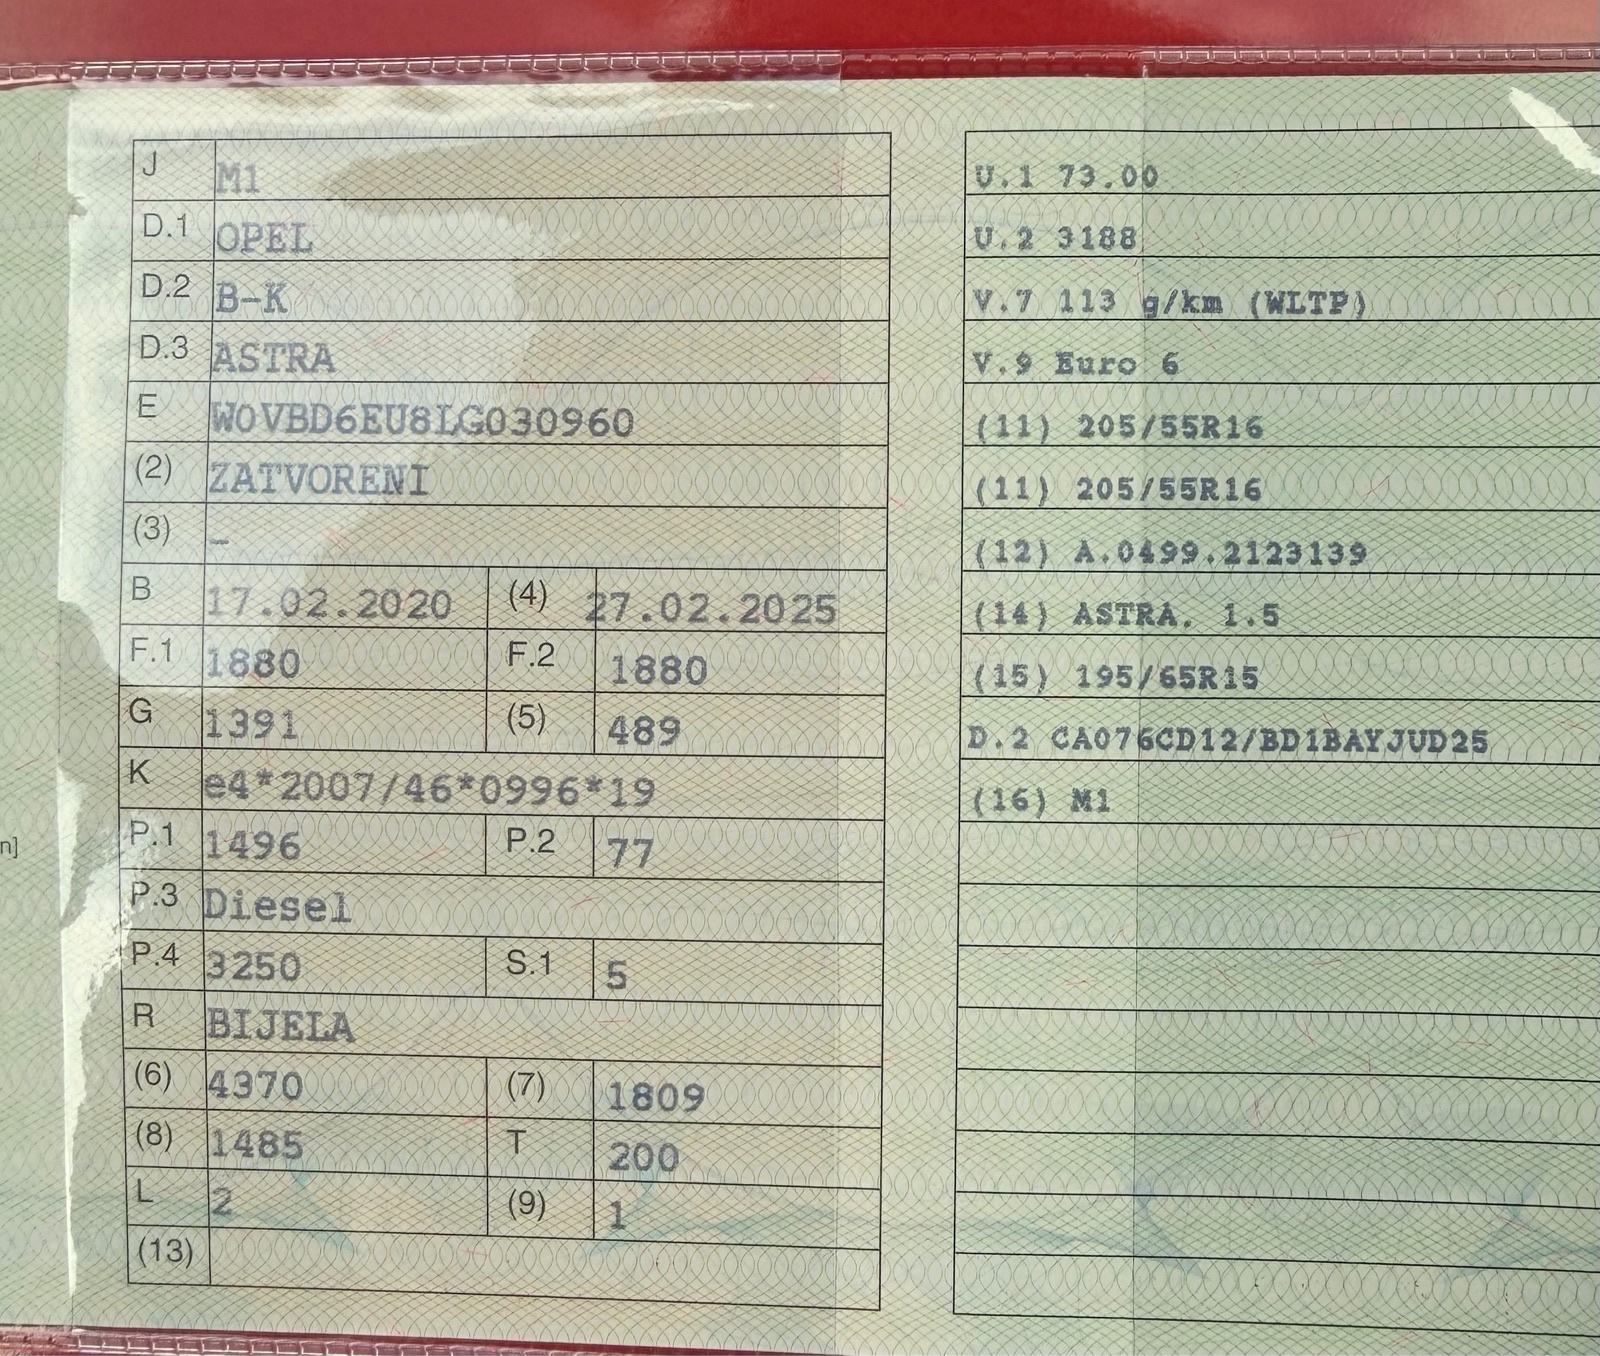 J M1
D.1 OPEL
D.2 B-K
D.3 ASTRA
E W0VBD6EU8LG030960
(2) ZATVORENI
(3) -
B 17.02.2020 (4) 27.02.2025
F.1 1880 F.2 1880
G 1391 (5) 489
K e4*2007/46*0996*19
n]
P.1 1496 P.2 77
P.3 Diesel
P.4 3250 S.1 5
R BIJELA
(6) 4370 (7) 1809
(8) 1485 T 200
L 2 (9) 1
(13)
U.1 73.00
U.2 3188
V.7 113 g/km (WLTP)
V.9 Euro 6
(11) 205/55R16
(11) 205/55R16
(12) A.0499.2123139
(14) ASTRA, 1.5
(15) 195/65R15
D.2 CA076CD12/BD1BAYJUD25
(16) M1